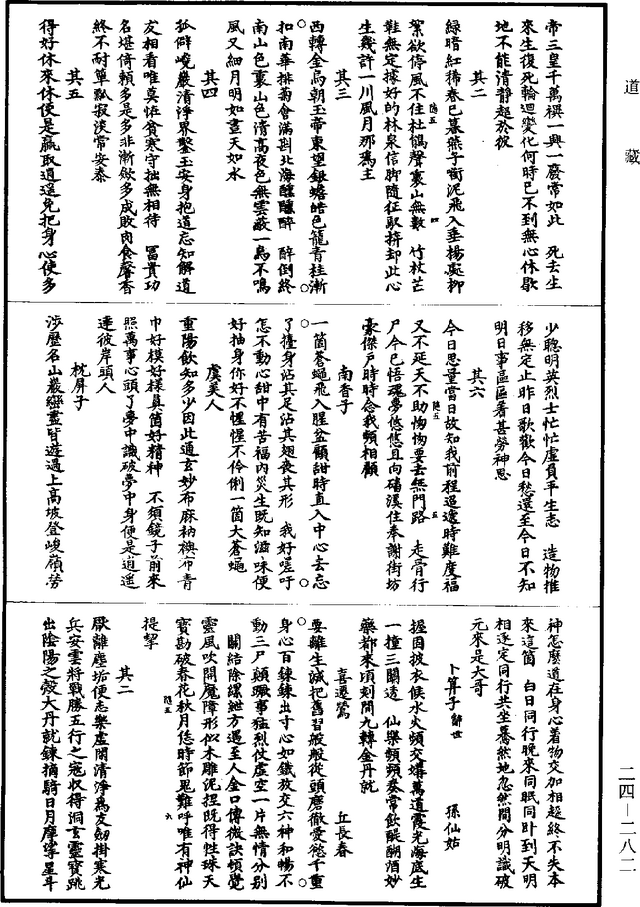 道藏
帝三皇千萬櫬一興一廢常如此　死去生
來生復死輪迴變化何時已不到無心休歇
地不能清静超於彼
其二
緑暗紅稀春已暮燕子啣泥飛入垂楊處柳
絮欲停風不住杜鵑聲裏山無數　竹杖芒
鞋無定據好的林泉信脚隨征馭拚却此心
生幾許一川風月那爲主
其三
西轉金烏朝玉帝東望銀蟾皓色籠青桂漸
扣南華排菊會滿斟北海醺醺醉　醉倒終
南山色裏山色清高夜色無雲蔽一鳥不鳴
風又細月明如晝天如水
其四
孤僻嶢巖清淨界繫玉安身抱道忘知解道
友相看唯莫恠貧寒守拙無相待　冨貴功
名堪倚頼多是多非漸欲多成敗肉食馨香
終不耐單瓢寂淡常安泰
其五
得好休來休便是贏取逍遥免把身心使多
少聰明英烈士忙忙虛負平生志　造物推
移無定止昨日歌歡今日愁還至今日不知
明日事區區著甚勞神思
其六
今日思量當日故知我前程迢遞時難度福
又不延天不助恂恂要去無門路　走骨行
尸今已悟魂夢悠悠且向磻溪住奉謝街坊
豪傑戶時時念我頻相顧
南香子
一箇蒼蠅飛入腥盆顧甜時直入中心去忘
了擡身沾其足沾其翅喪其形　我好嗟吁
怎不動心甜中有苦福内災生既知滋味便
好抽身你好不惺惺不伶俐一箇大蒼蠅
虞美人
重陽飲知多少因此通玄妙布麻衲襖布青
巾好模好樣真箇好精神　不須鏡子前來
照萬事心頭了夢中識破夢中身便是逍遥
達彼岸頭人
枕屏子
涉歷名山巖經盡皆遊過上高坡登峻嶺勞
神怎麽道在身心着物交加相趂終不失本
來這箇　白日同行晚來同眠同卧到天明
相逐定同行共坐驀然地忽然間分明識破
元來是大哥
卜算子　辭世　　孫仙姑
握固披衣候水火頻交媾萬道霞光海底生
一撞三關透　仙樂頻頻奏常飲醍醐酒妙
藥都來頃刻間九轉金丹就
喜遷鶯　　丘長春
要離生滅把舊習般般從頭磨徹愛慾千重
身心百鍊鍊出寸心如鐵放交六神和暢不
動三尸顛蹶事猛烈仗虛空一片無情分别
關結除縲紲方遇至人金口傳微訣頓覺
靈風吹開魔障形似木雕泥捏既得性珠天
寶勘破春花秋月恁時節鬼難呼唯有神仙
提挈
其二
厭離塵垢便志樂虛閑清淨爲友劒掛寒光
兵安雲將戰勝五行之宼收得洞玄靈寶跳
出陰陽之殼大丹就鍊摘騎日月摩挲星斗
二四—二八二